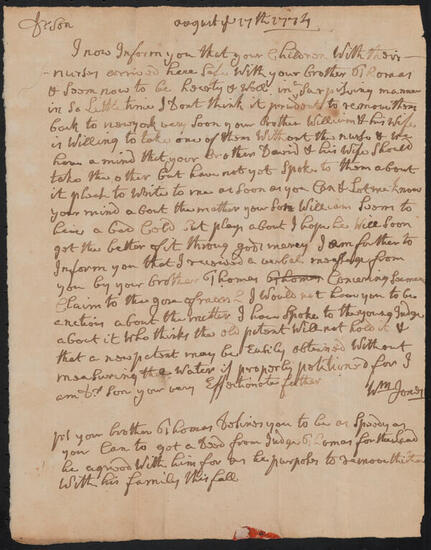 Dr Son august ye 17th 1774
I now Inform you that your Children With their
nurses arrived here Safe With your Brother Thomas
& Seem now to be hearty & Well in a Surprising manner
in So Little time I Dont think it prudent to remove them
back to newyork very Soon your Brother William & his Wife
is Willing to take one of them Without the nurse & We
have a mind that your Brother David & his Wife Should
take the other but have not yet Spoke to them about
it pleas to Write to me as Soon as you Can & Let me know
your mind about the matter your Son William Seem to
have a bad Cold but plays about I hope he Will Soon
get the better of it throug gods mercy I am further to
Inform you that I received a verbal message from
you by your brother Thomas Concerning
Claim to the I Would not have you to be
about the matter I have Spoke to the young Judge
about it Who thinks the old patent Will not hold it &
that a new patent may be Easily obtained Without
measuring the Water if properly petitioned for I
am Dr Son your very Effectionate father
Wm Jones
your brother Thomas Desires you to be as Speedy as
your Can to got a Deed from Judge Thomas for the Land
he agreed With him for as he purposes to remove
With his family this fall